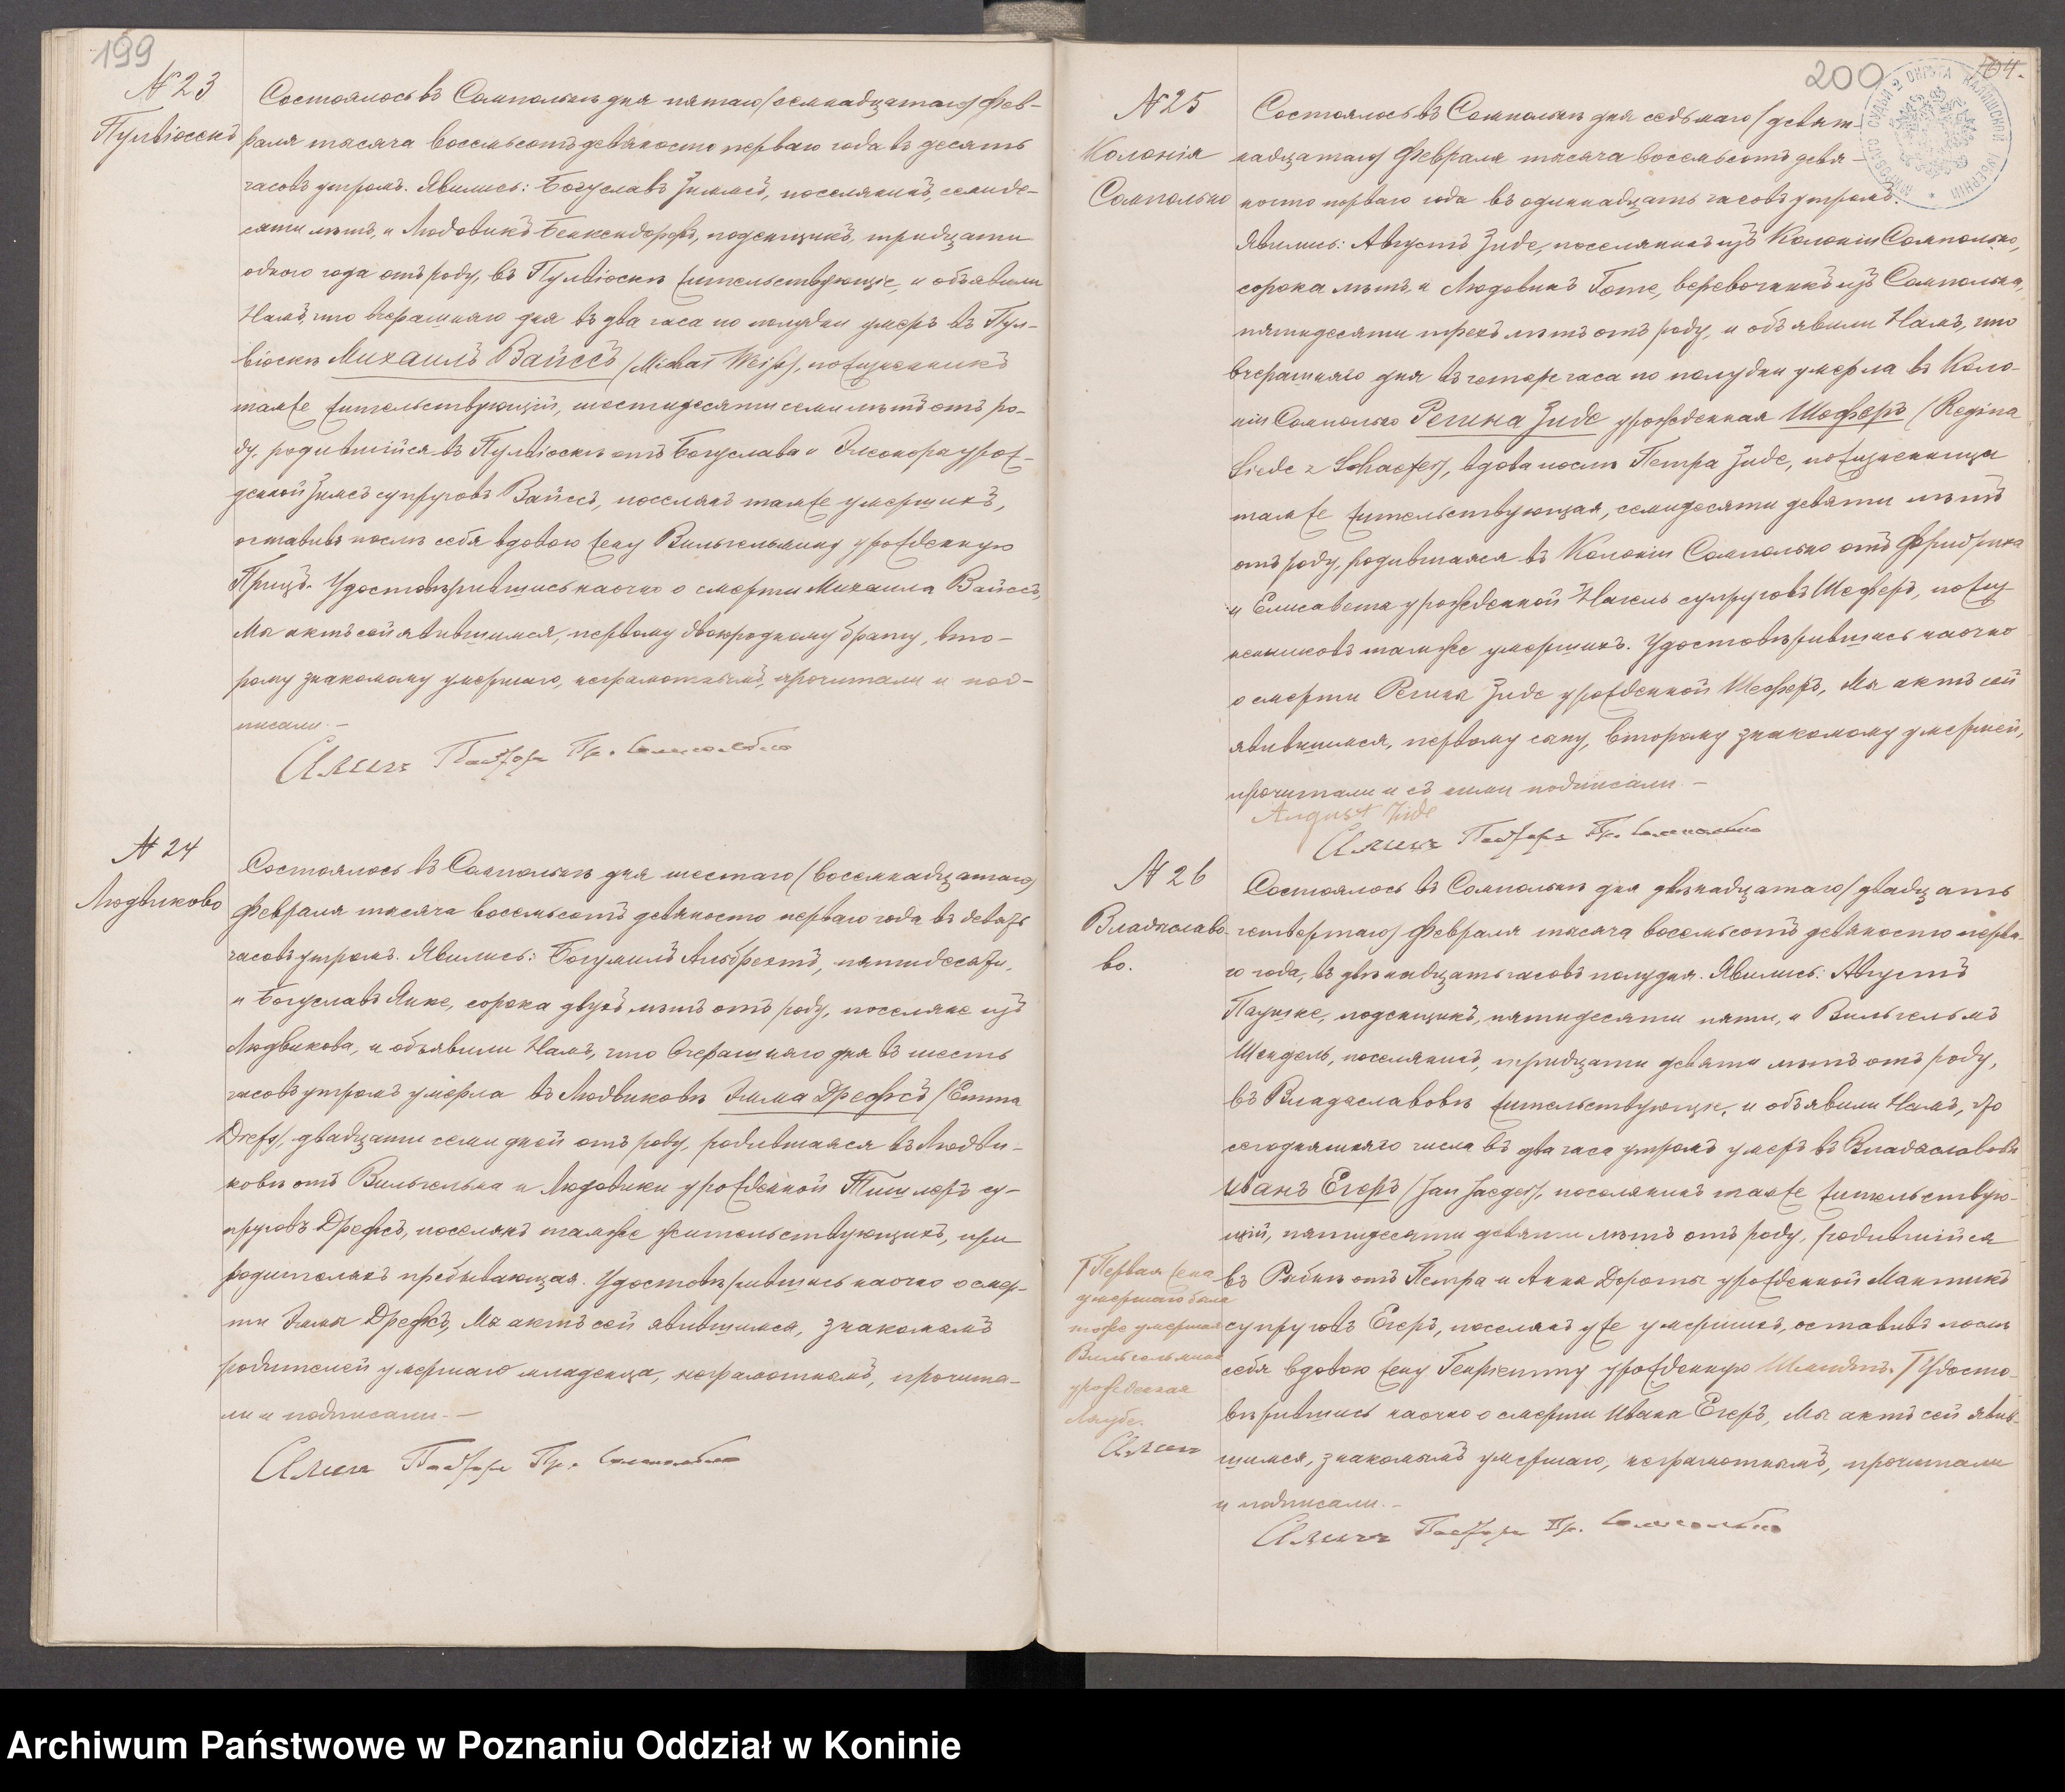 199
№ 23
Пулвіосекъ
Состоялось въ Сомпольнѣ дня пятаго /семнадцатаго/ Фев-
раля тысяча восемьсотъ девяносто перваго года въ десять
часовъ утромъ. Явились: Богуславъ Зиммсъ, поселянинъ, семиде-
сяти лѣтъ, и Людовикъ Бенкендорфъ, поденщикъ, тридцати
одного года отъ роду, въ Пулвіоскѣ жительствующіе, и объявили
Намъ, что вчерашняго дня въ два часа по полудни умеръ въ Пул-
віоскѣ Михаилъ Вайссъ /Michał Weiss/, пожизненникъ
тамже жительствующій, шестидесяти семи лѣтъ отъ ро-
ду, родившійся въ Пулвіоскѣ отъ Богуслава и Элеоноры урож-
денной Зимсъ супруговъ Вайссъ, поселянъ тамже умершихъ,
оставивъ послѣ себя вдовою жену Вильгельмину урожденную
Прицъ. Удостовѣрившись наочно о смерти Михаила Вайссъ,
Мы актъ сей явившимся, первому двоюродному брату, вто-
рому знакомому умершаго, неграмотнымъ, прочитали и под-
писали. —
Пасторъ Пр. Сомпольно
№ 24
Людвиково
Состоялось въ Сомпольнѣ дня шестаго /восемнадцатаго/
Февраля тысяча восемьсотъ девяносто перваго года въ девять
часовъ утромъ. Явились: Богумилъ Альбрехтъ, пятидесяти,
и Богуславъ Янке, сорока двухъ лѣтъ отъ роду, поселяне изъ
Людвикова, и объявили Намъ, что вчерашняго дня въ шесть
часовъ утромъ умерла въ Людвиковѣ Эмма Дрефсъ /Emma
Drefs/, двадцати семи дней отъ роду, родившаяся въ Людви-
ковѣ отъ Вильгельма и Людовики урожденной Тишлеръ су-
пруговъ Дрефсъ, поселянъ тамже жительствующихъ, при
родителяхъ пребывающая. Удостовѣрившись наочно о смер-
ти Эммы Дрефсъ, Мы актъ сей явившимся, знакомымъ
родителей умершаго младенца, неграмотнымъ, прочита-
ли и подписали. —
Пасторъ Пр. Сомпольно
200
104.
МИРОВАГО СУДЬИ 3 ОКРУГА КАЛИШСКОЙ ГУБЕРНІИ
№ 25
Колонія
Сомпольно
Состоялось въ Сомпольнѣ дня седьмаго /девят-
надцатаго/ Февраля тысяча восемьсотъ девя-
носто перваго года въ одиннадцать часовъ утромъ.
Явились: Августъ Зиде, поселянинъ изъ Колоніи Сомпольно,
сорока лѣтъ, и Людовикъ Готе, веревочникъ изъ Сомпольна,
пятидесяти трехъ лѣтъ отъ роду, и объявили Намъ, что
вчерашняго дня въ четыре часа по полудни умерла въ Коло-
ніи Сомпольно Регина Зиде урожденная Шеферъ /Regina
Siede z Schaefer/, вдова послѣ Петра Зиде, пожизненница
тамже жительствующая, семидесяти девяти лѣтъ
отъ роду, родившаяся въ Колоніи Сомпольно отъ Фридриха
и Елисаветы урожденной Нагель супруговъ Шеферъ, пожиз-
ненниковъ тамже умершихъ. Удостовѣрившись наочно
о смерти Регины Зиде урожденной Шеферъ, Мы актъ сей
явившимся, первому сыну, второму знакомому умершей,
прочитали и съ ними подписали. —
August Zide
Пасторъ Пр. Сомпольно
№ 26
Владиславо-
во.
Состоялось въ Сомпольнѣ дня двѣнадцатаго /двадцать
четвертаго/ Февраля тысяча восемьсотъ девяносто перва-
го года, въ двѣнадцать часовъ полудня. Явились: Августъ
Паушке, поденщикъ, пятидесяти пяти, и Вильгельмъ
Шендель, поселянинъ, тридцати девяти лѣтъ отъ роду,
въ Владиславовѣ жительствующіе, и объявили Намъ, что
сегодняшняго числа въ два часа утромъ умеръ въ Владиславовѣ
Иванъ Егеръ /Jan Jaeger/, поселянинъ тамже жительствую-
щій, пятидесяти девяти лѣтъ отъ роду, родившійся
въ Рыбнѣ отъ Петра и Анны Дороты урожденной Мантикъ
супруговъ Егеръ, поселянъ уже умершихъ, оставивъ послѣ
себя вдовою жену Генріетту урожденную Шмидтъ. Т Удосто-
вѣрившись наочно о смерти Ивана Егеръ, Мы актъ сей явив-
шимся, знакомымъ умершаго, неграмотнымъ, прочитали
и подписали. —
Пасторъ Пр. Сомпольно
Т Первая жена
умершаго была
тоже умершая
Вильгельмина
урожденная
Лаубе.
Archiwum Państwowe w Poznaniu Oddział w Koninie